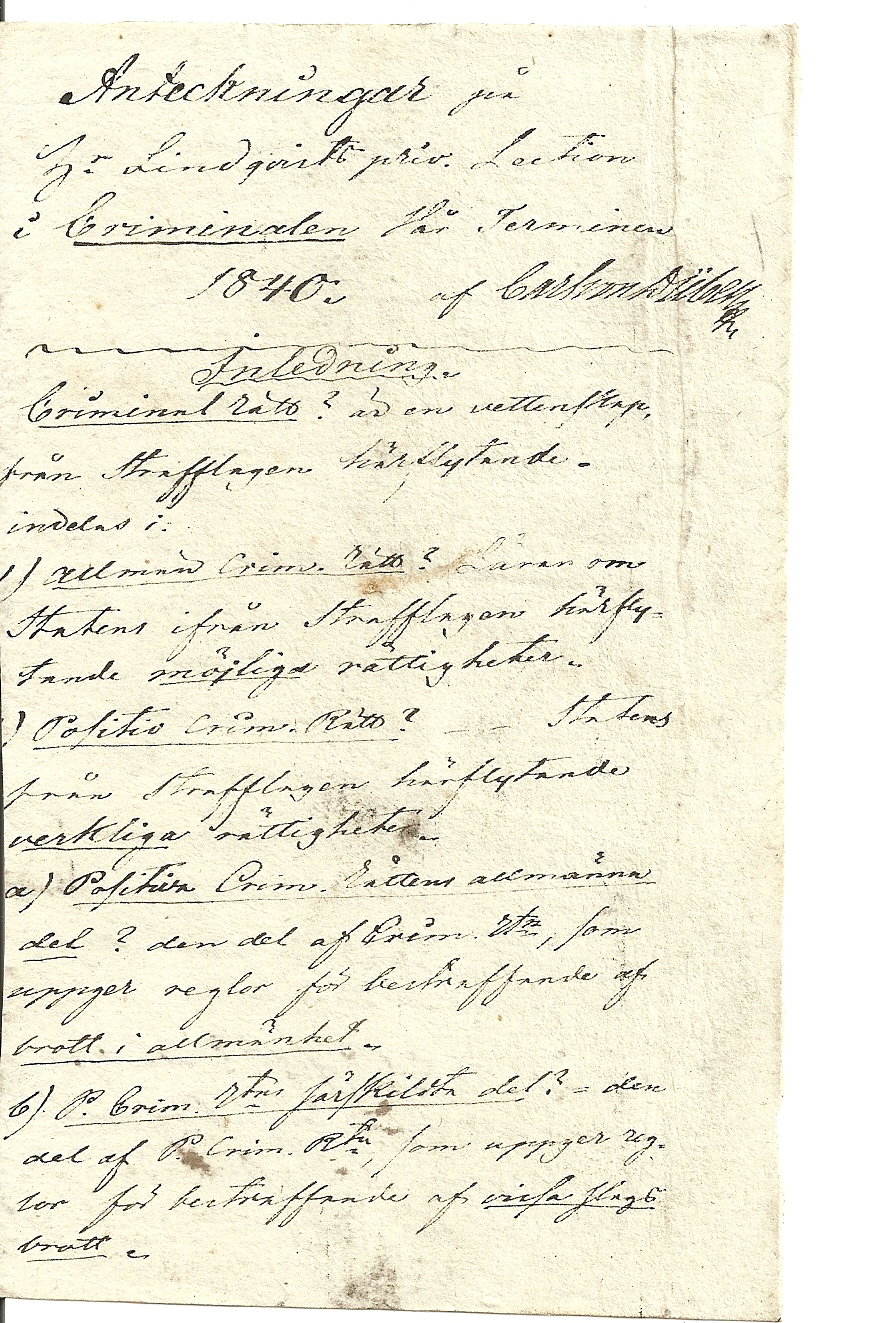 Anteckningar på
Hr Lindqvists priv. Lection
i Criminalen Vår Terminen
1840. af Carl von Düben
Inledning.
Criminal rätt? är en vettenskap,
från Strafflagen härflytande.
indelas i:
1) allmän Crim. rätt? Läran om
Statens ifrån Strafflagen härfly-
tande möjliga rättigheter.
) Positiv Crim. Rätt? _ _ Statens
från Strafflagen härflytande
verkliga rättigheter.
a) Positiva Crim. rättens allmänna
del? den del af Crim. rtn, som
uppger reglor för bestraffande af
brott i allmänhet.
b). P. Crim. rtns särskildta del? = den
del af P. Crim. Rtn, som uppger reg-
lor för bestraffande af vissa slags
brott.